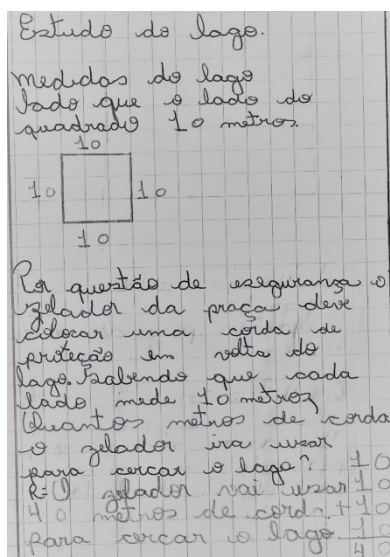 Estudo do lago.
Medidas do lago
lado que o lado do
quadrado 10 metros.
10
10 10
10
Por questão de esegurança o
zelador da praça deve
colocar uma corda de
proteção em volta do
lago. Sabendo que cada
lado mede 10 metros,
Quantos metros de corda
o zelador ira usar
para cercar o lago? 10
R=O zelador vai usar 10
40 metros de corda +10
para cercar o lago. 10
40